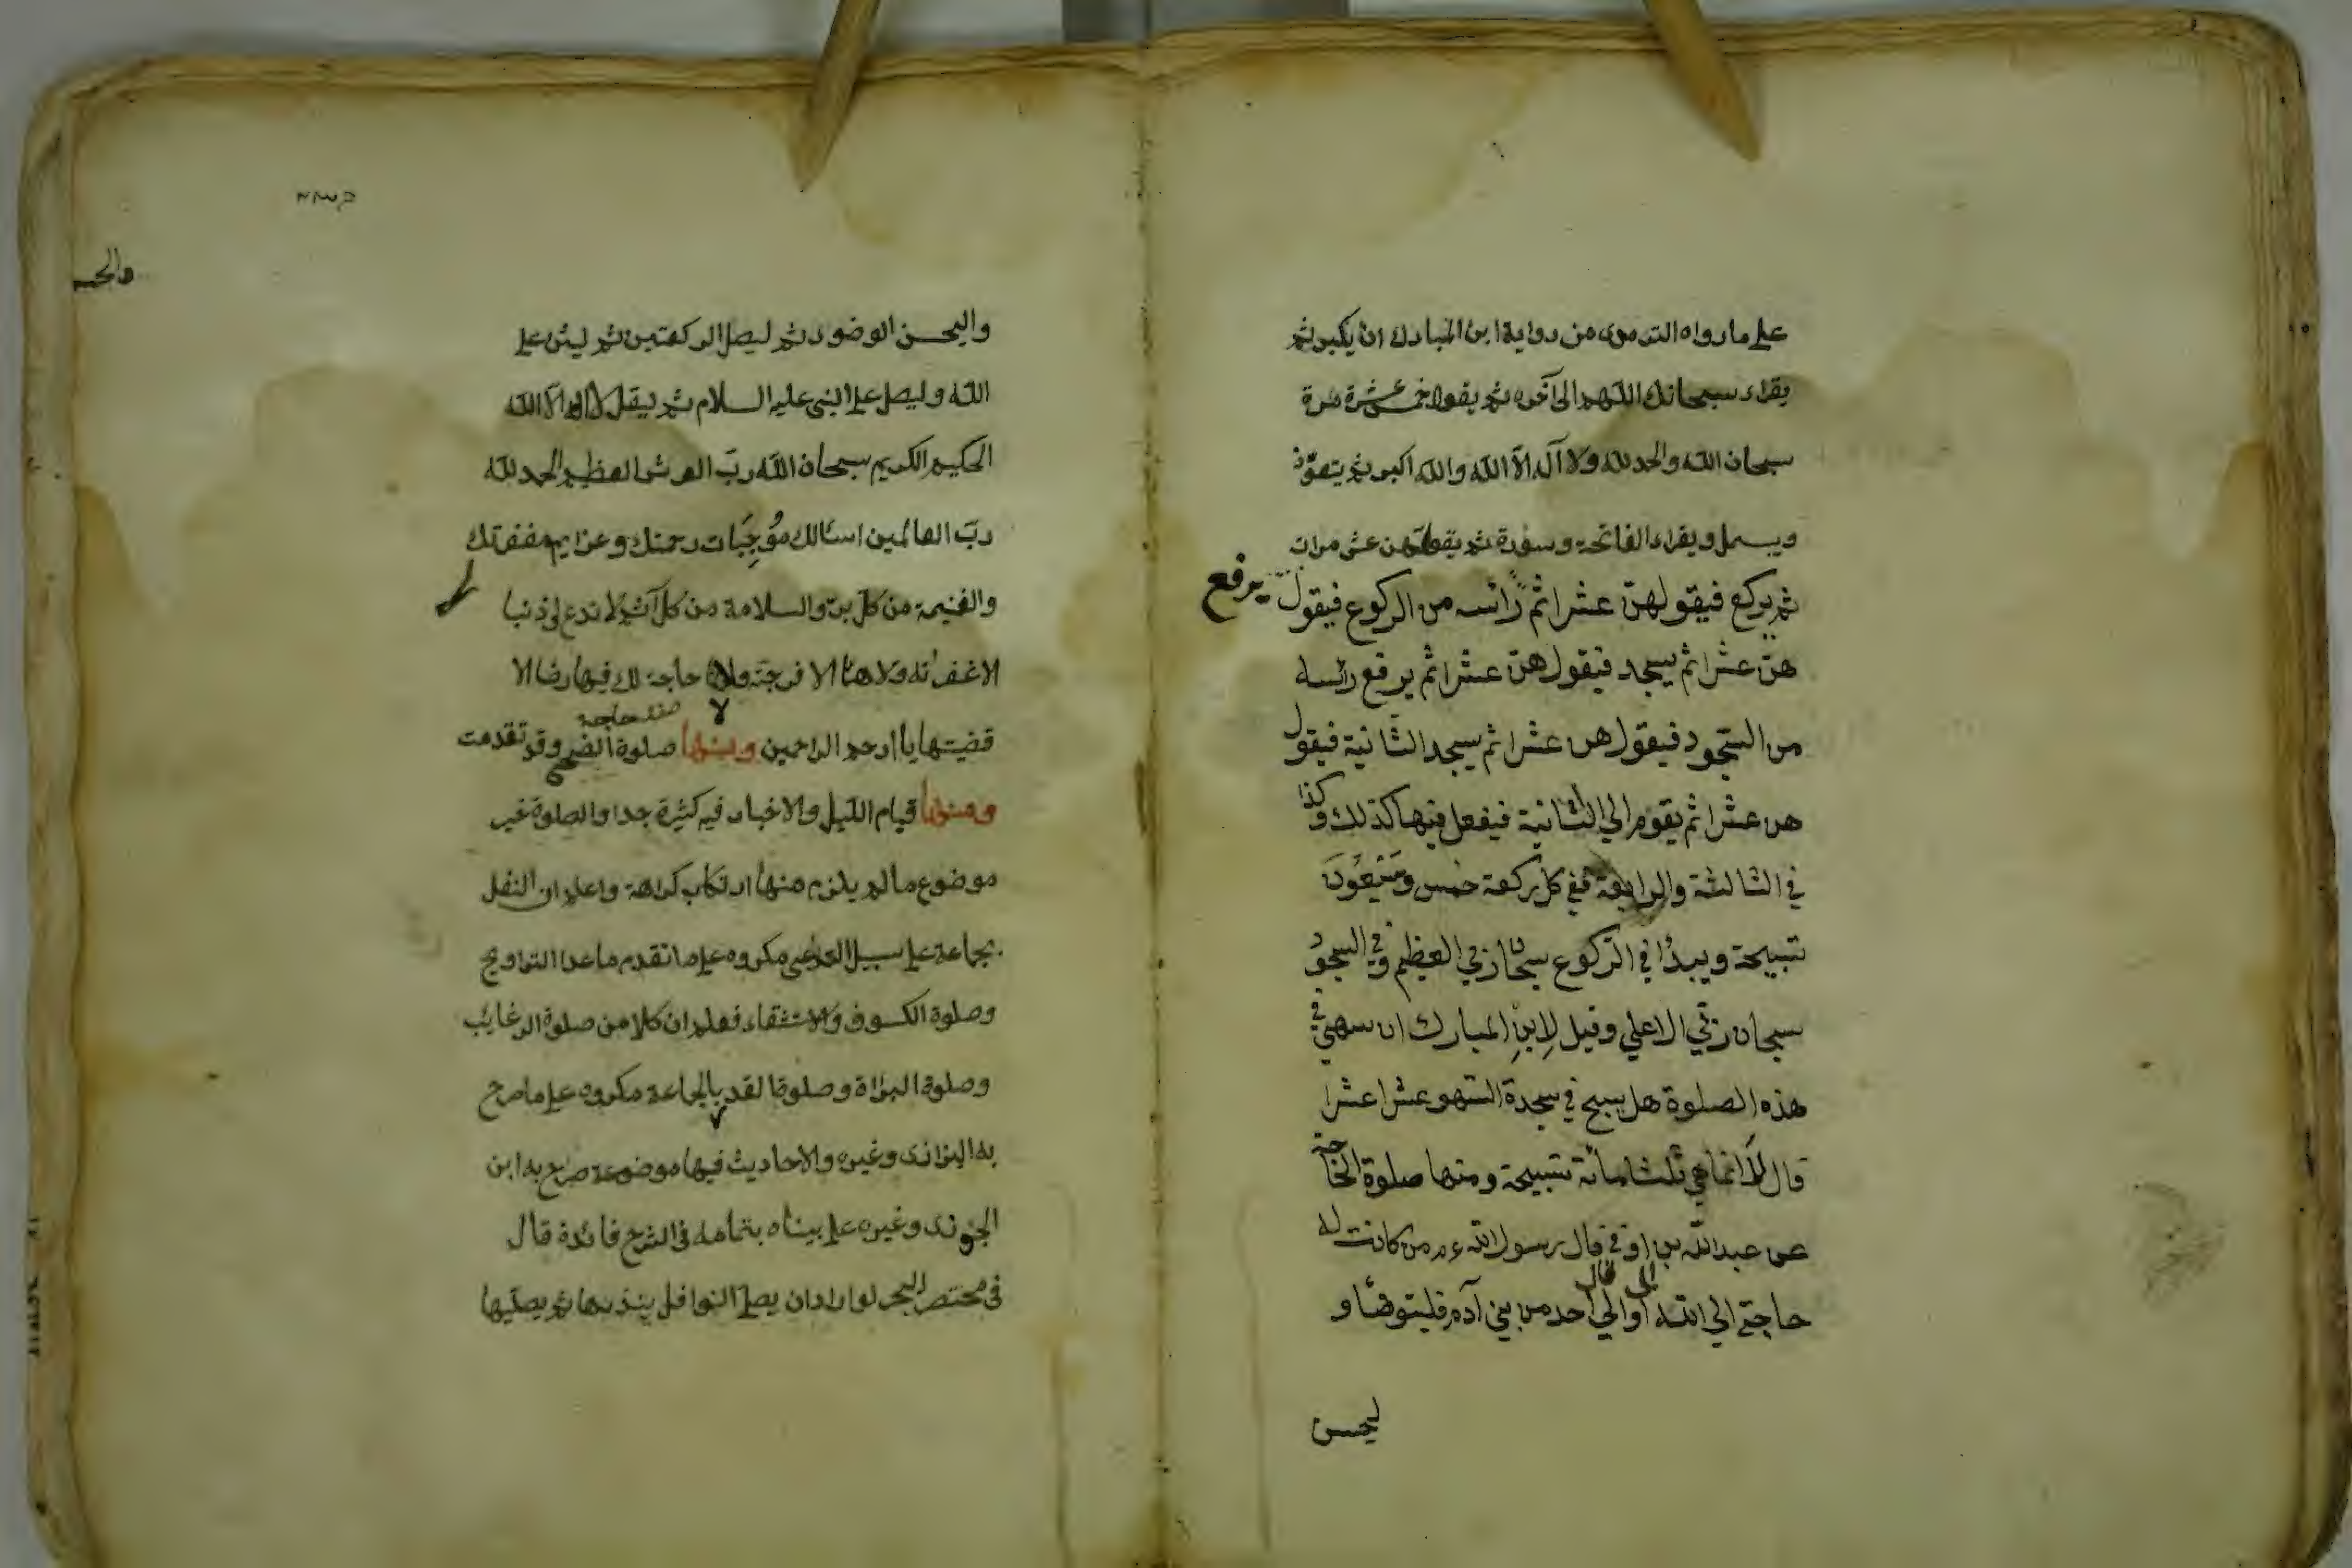 علي ما رواه الترمذي من رواية ابن المبارك ان يكبر ثم
يقراء سبحانك اللهم الى آخره ثم يقول خمس عشرة مرة
سبحان الله والحمد لله ولا آله الا الله والله اكبر ثم يتعوّذ
ويبسمل ويقراء الفاتحة وسورة ثم يقولهن عشر مرات
ثم يركع فيقولهنّ عشرا ثم رائسه من الركوع فيقول
يرفع
هنّ عشرا ثم يسجد فيقول هنّ عشرا ثم يرفع رائسه
من السّجود فيقول هن عشرا ثم يسجد الثانية فيقول
هن عشرا ثم يقوم الي الثانية فيفعل فيها كذلك وكذا
في الثالثة والرابعة ففي كل ركعة خمس وسَبْعُونَ
تسبيحة ويبدأ في الرّكوع سبحان ربّي العظيم وفي السجود
سبحان ربّي الاعلي وقيل لِابنِ المبارك ان سهي في
هذه الصلوة هل يسبح في سجدة السّهو عشرا عشرا
قال لَا انما هي ثلثمائة تسبيحة ومنها صلوة الحاجة
عن عبدالله بن اوفي قال رسول الله عم من كانت له
الى قال
حاجة الي الله اوالي احد من بني آدم فليتوضأ و
ليحسن
والحسـ
واليحسن الوضوء ثم ليصل الركعتين ثم ليثن علي
الله وليصل علي النبي عليه السلام ثم ليقل لا اله الا الله
الحكيم الكريم سبحان الله ربّ العرش العظيم الحمد لله
ربّ العالمين اسئالك مُوجِبَات رحمتك وعزايم مغفرتك
والغنيمة من كل برّ والسلامة من كل آثم لا تدع لي ذنبا
الا غفرته ولا همّا الا فرجته ولا حاجة لك فيها رضا الا
قضيتها يا ارحم الراحمين ومنها صلوة الضحى وقد تقدمت
ومنها قيام الليل والاخبار فيه كثيرة جدا والصلوة خير
موضوع ما لم يلزم منها ارتكاب كراهة واعلم ان النفل
بجماعة علي سبيل التداعي مكروه علي ما تقدم ما عدا التراويح
وصلوة الكسوف والاستسقاء فعلم ان كلا من صلوة الرغايب
وصلوة البراة وصلوة القدر بالجماعة مكروه علي ما صرح
به البزازى وغيره والاحاديث فيها موضوعة صرح به ابن
الجوزى وغيره علي بيناه بتمامه فى الشرح فائدة قال
فى مختصر البحر لو اراد ان يصلي النوافل ينذرها ثم يصلّيها